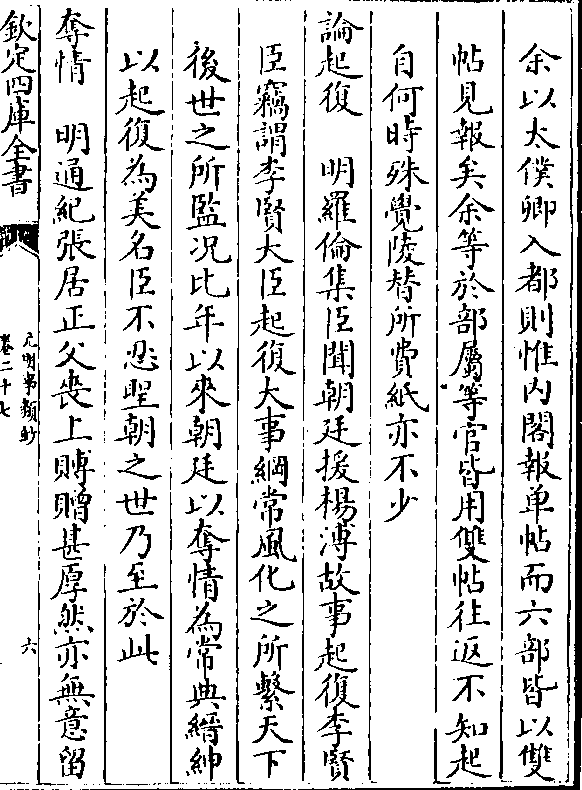 余以太僕卿入都則惟内閣報单帖而六部皆以雙
帖見報矣余等於部屬等官皆用雙帖往返不知起
自何時殊覺陵替所費紙亦不少
論起復　明羅倫集臣聞朝廷援楊溥故事起復李賢
臣竊謂李賢大臣起復大事綱常風化之所繫天下
後世之所監况比年以來朝廷以奪情為常典縉紳
以起復為美名臣不忍聖朝之世乃至於此
奪情　明通紀張居正父喪上賻贈甚厚然亦無意留
欽定四庫全書
元明事類鈔
卷二十七
六